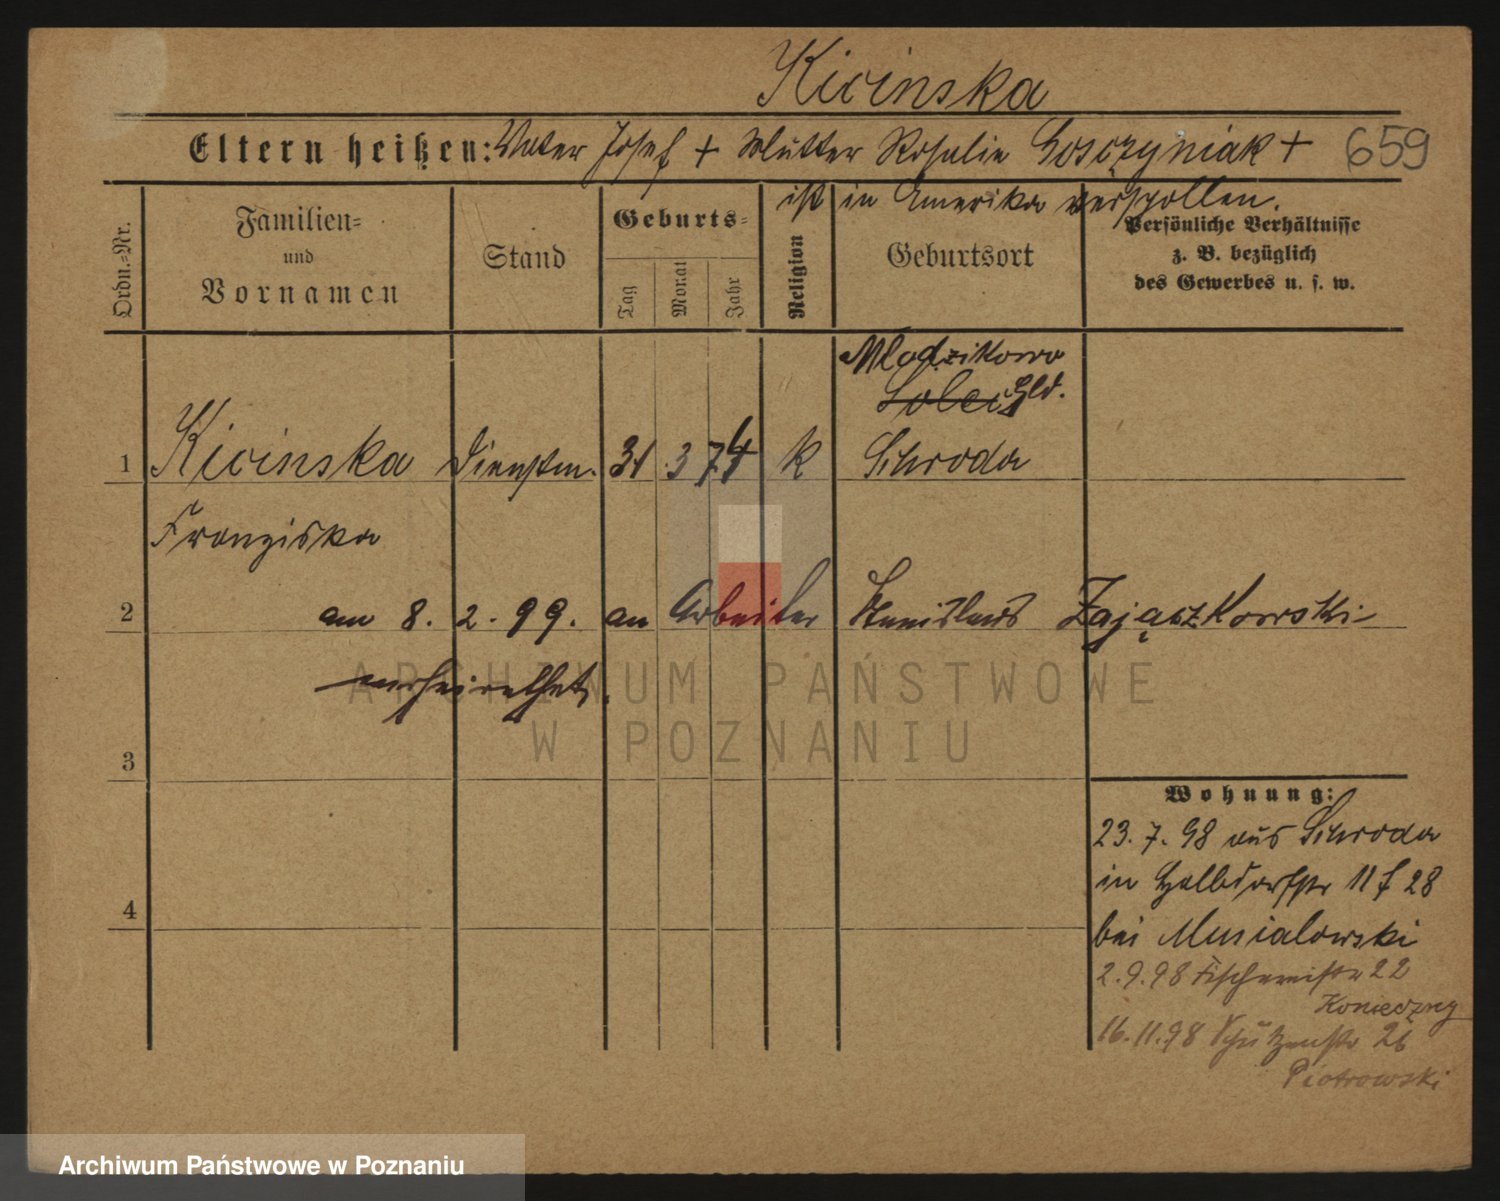 Kicinska
Eltern heißen: Vater Josef + Mutter Rosalie Goszczyniak + 659
ist in Amerika verschollen.
Ordn.-Nr.
Familien-
und
Vornamen
Stand
Geburts-
Tag
Monat
Jahr
Religion
Geburtsort
Persönliche Verhältnisse
z. B. bezüglich
des Gewerbes u. s. w.
Mlodzikowo
Solec Hld.
1 Kicinska Dienstm. 31 3 74 k Schroda
Franziska
2 am 8. 2. 99. an Arbeiter Stanislaus Zajączkowski
verheirathet.
3
4
Wohnung:
23. 7. 98 aus Schroda
in Halbdorfstr 11 f 28
bei Musialowski
2. 9. 98 Fischereistr 22
Konieczny
16. 11. 98 Schützenstr 26
Piotrowski
ARCHIWUM PAŃSTWOWE
W POZNANIU
Archiwum Państwowe w Poznaniu